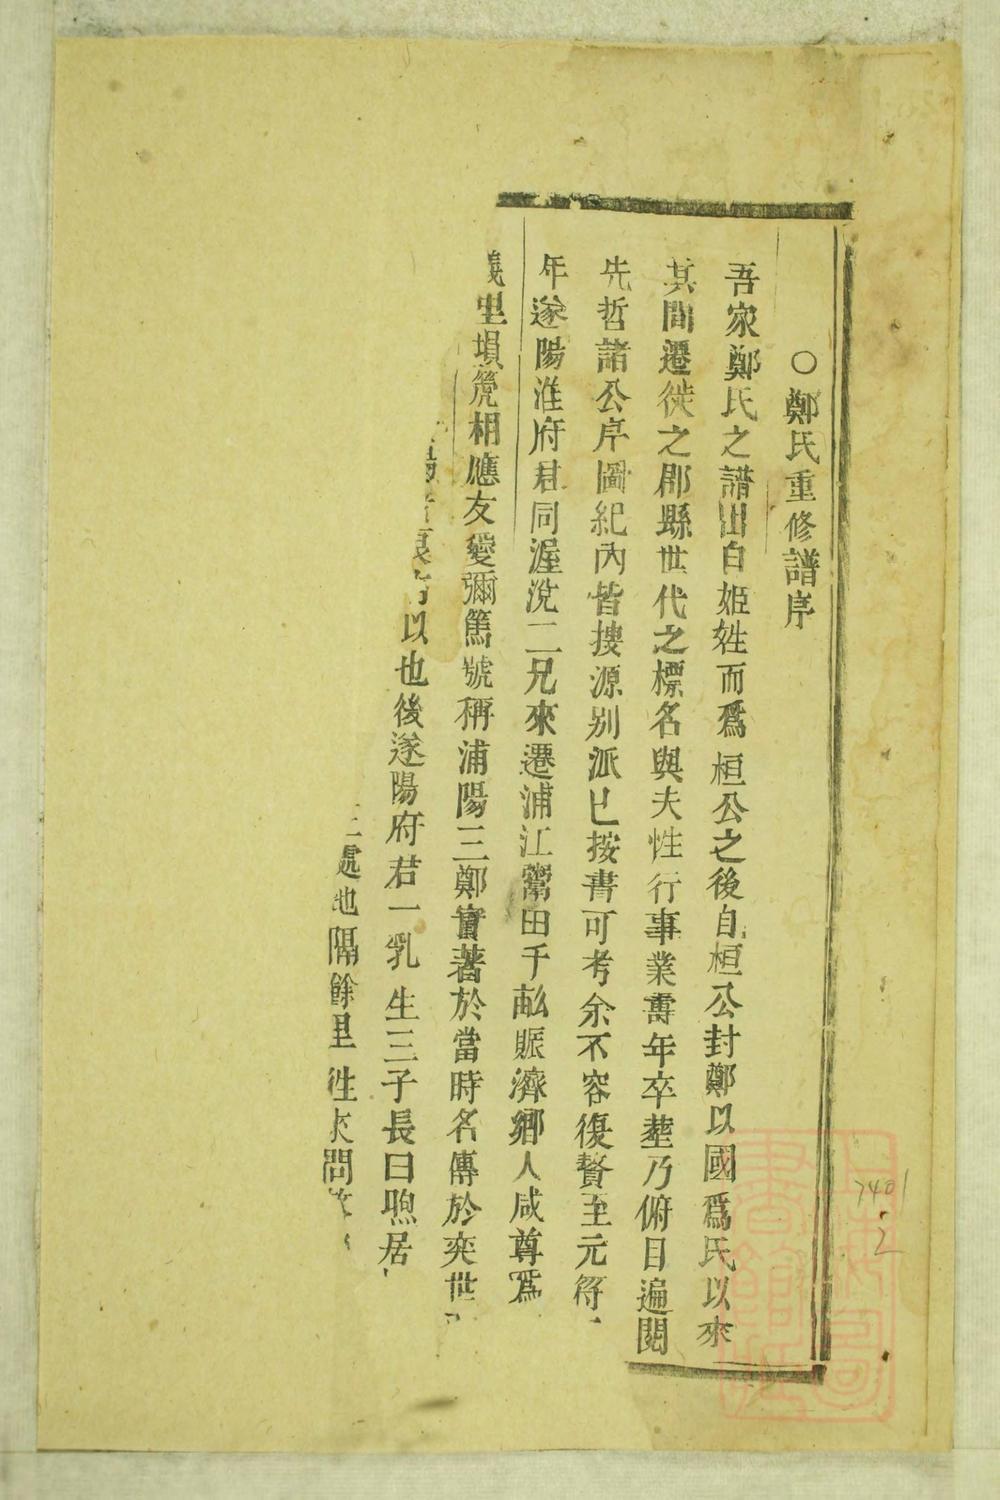 ○鄭氏重修譜序
吾家鄭氏之譜出自姬姓而爲桓公之後自桓公封鄭以國爲氏以來
其間遷徙之郡縣世代之標名與夫性行事業壽年卒塟乃俯日遍閱
先哲諸公序圖紀內皆搜源别派已按書可考余不容復贅至元符
年遂陽淮府君同渥涗二兄來遷浦江鬻田千畝賑濟鄉人咸尊爲
義里塤箎相應友愛彌篤號稱浦陽三鄭實著於當時名傳於奕世
以也後遂陽府君一乳生三子長曰煦居
處地隔餘里徃來問
7401
2